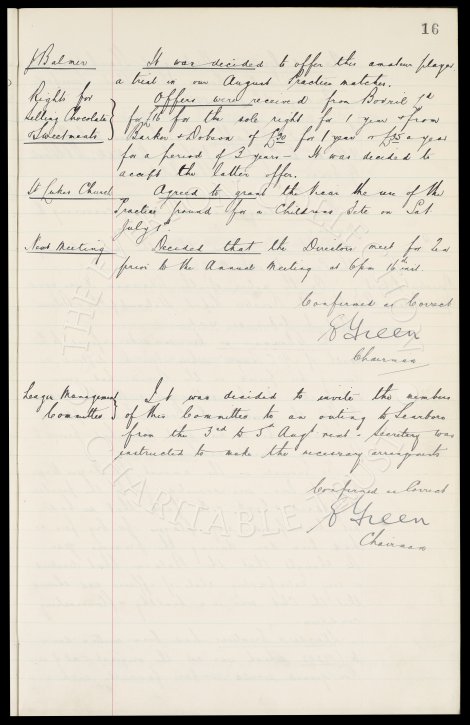 16
J Balmer It was decided to offer this amateur player
a trial in our August Practice matches.
Rights for Offers were received from Bovril Ld
Selling Chocolate for £16 for the sole right for 1 year & from
& Sweetmeats Barker & Dobson of £30 for 1 year or £35 a year
for a period of 3 years - It was decided to
accept the latter offer.
St Lukes Church Agreed to grant the Vicar the use of the
Practice ground for a Childrens fete on Sat
July 1st.
Next Meeting Decided that the Directors meet for Tea
prior to the Annual Meeting at 6pm 16th inst.
Confirmed as Correct
E Green
Chairman
League Management It was decided to invite the members
Committee of this Committee to an outing to Scarboro
from the 3rd to 5th Augt next - Secretary was
instructed to make the necessary arrangements
Confirmed as Correct
E Green
Chairman
THE EVERTON
CHARITABLE TRUST